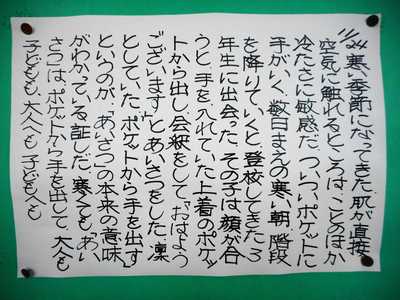 寒い季節になってきた。肌が直接
空気に触れるところは、ことのほか
冷たさに敏感だ。ついついポケットに
手がいく。数日まえの寒い朝、階段
を降りていくと、登校してきた3
年生に出会った。その子は、顔が合
うと、手を入れていた上着のポケッ
トから出し、会釈をして、「おはよう
ございます」とあいさつをした。凜
としていた。「ポケットから手を出す」
というのが、「あいさつ」の本来の意味
がわかっている証しだ。寒くても、「あい
さつ」は、ポケットから手を出して 大人も
子どもも、大人へも 子どもへも